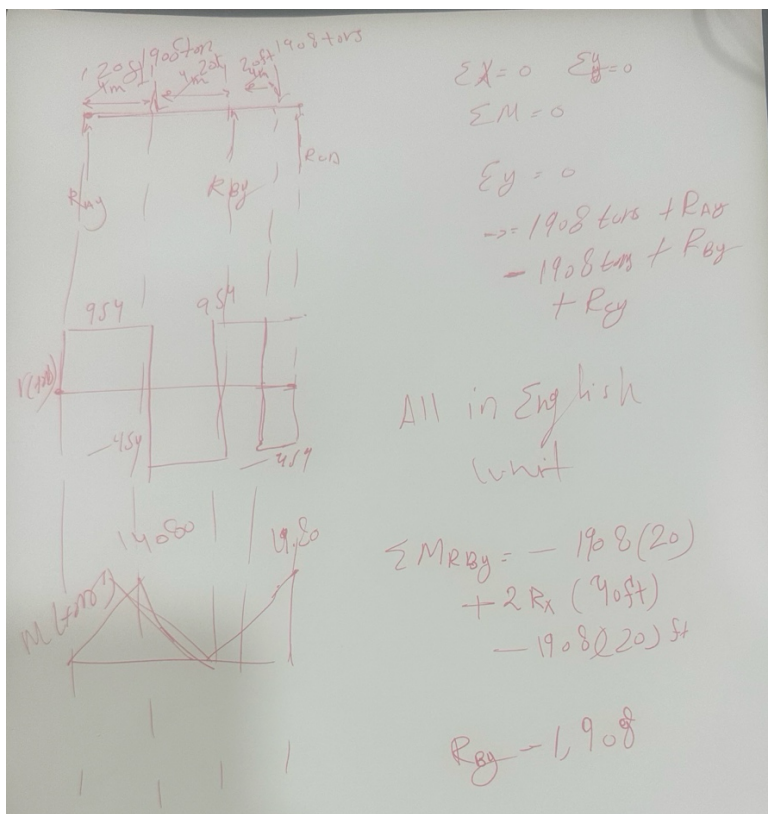 20ft 1908 tons 20ft 20ft 1908 tons
4m 4m 4m
RAy RBy
954 954
-454 -454
14080
M
ΣX = 0 Σy = 0
ΣM = 0
Σy = 0
-> = 1908 tons + RAy
- 1908 tons + RBy
+ RCy
All in English
Unit
ΣMRBy = - 1908(20)
+ 2Rx (40ft)
- 1908(20) ft
RBy - 1,908